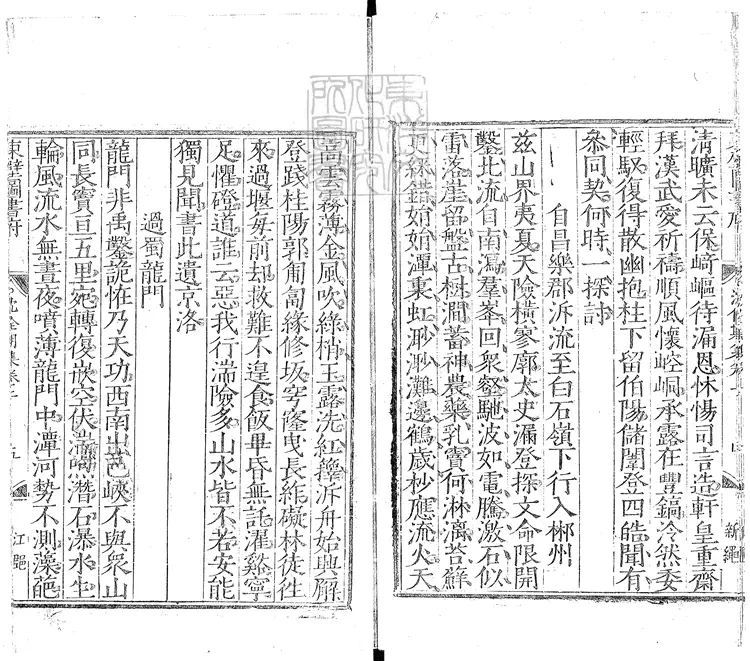 清曠未云保﨑嶇待漏恩怵惕司言造軒皇重齋
拜漢武愛祈禱順風懷崆峒承露在豐鎬泠然委
輕馭復得散幽抱柱下留伯陽儲闈登四皓聞有
叅同契何時一探討
自昌樂郡泝流至白石嶺下行入郴州
兹山界夷夏天險橫寥廓太史漏登探文命限開
鑿北流自南瀉羣峯回衆壑馳波如電騰激石似
雷落崖留盤古樹澗蓄神農藥乳竇何淋漓苔蘚
更綵錯娟娟潭裏虹渺渺灘邊鶴歲杪應流火天
高雲霧薄金風吹綠梢玉露洗紅籜泝舟始興廨
登踐桂陽郭匍匐緣修坂穹窿曳長綍礙林阻徃
來過堰每前却救難不遑食飯畢昏無託濯谿寧
足懼磴道誰云惡我行湍險多山水皆不若安能
獨見聞書此遺京洛
過蜀龍門
龍門非禹鑿詭怪乃天功西南出巴峽不與衆山
同長竇亘五里宛轉復嵌空伏湍喣潛石瀑水生
輪風流水無晝夜噴薄龍門中潭河勢不測藻葩
東壁圖書府
沈佺期集卷之一
五
江㽛